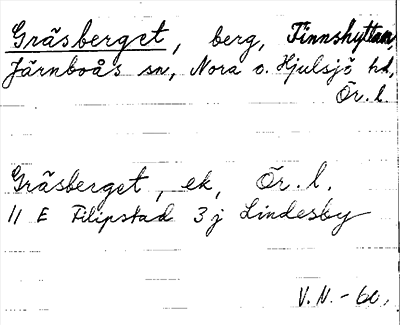 Gräsberget, berg, Finnshyttan,
Järnboås sn, Nora o. Hjulsjö hd,
Ör. l.
Gräsberget, ek, Ör. l.
11 E Filipstad 3 j Lindesby
V.N. - 60.